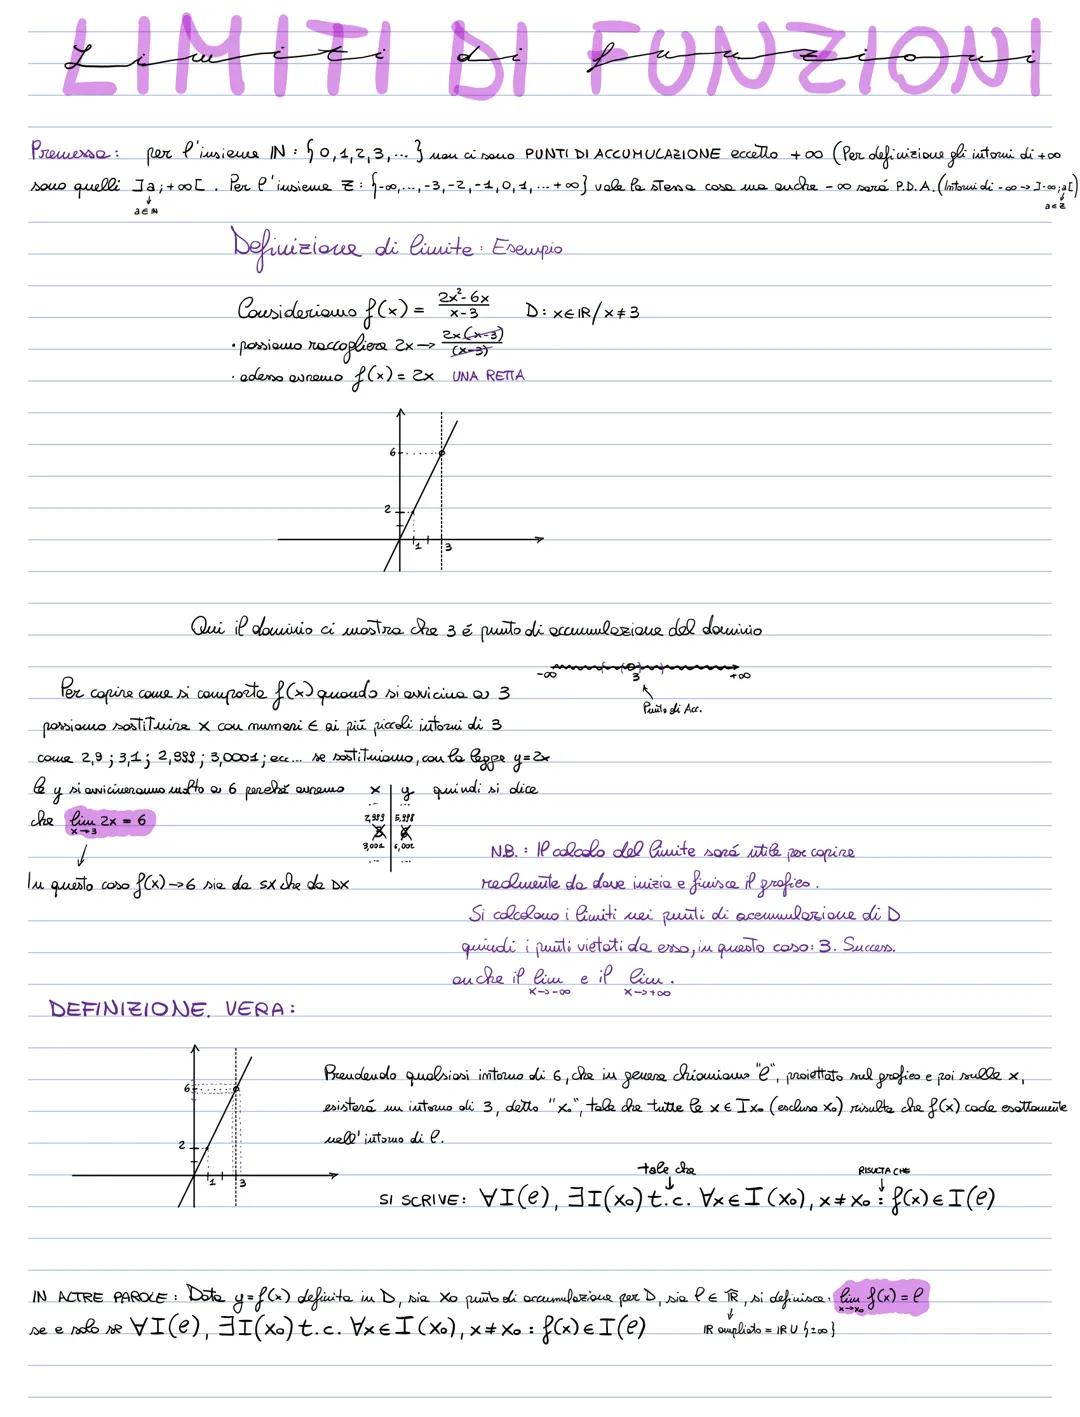 LIMITI DI FUNZIONI
Limiti di funzioni
Premessa: per l'insieme IN : {0,1,2,3,... } non ci sono PUNTI DI ACCUMULAZIONE eccetto +∞ (Per definizione gli intorni di +∞
sono quelli ]a;+∞[ . Per l'insieme Z : {-∞,...,-3,-2,-1,0,1,...+∞} vale la stessa cosa ma anche -∞ sará P.D.A. (Intorni di -∞ → ]-∞;a[)
a∈IN
a∈Z
Definizione di limite: Esempio
Consideriamo f(x) = 2x²-6x / x-3 D: x∈IR/x≠3
· possiamo raccogliere 2x → 2x(x-3) / (x-3)
· adesso avremo f(x) = 2x UNA RETTA
6
2
1 3
Qui il dominio ci mostra che 3 é punto di accumulazione del dominio
-∞ 3 +∞
Punto di Acc.
Per capire come si comporta f(x) quando si avvicina a 3
possiamo sostituire x con numeri ∈ ai piú piccoli intorni di 3
come 2,9 ; 3,1 ; 2,999 ; 3,0001 ; ecc... se sostituiamo, con la legge y=2x
le y si avvicineranno molto a 6 perché avremo x | y quindi si dice
... ...
2,999 | 5,998
3 | 6
3,001 | 6,002
... ...
che lim 2x = 6
x→3
In questo caso f(x)→6 sia da SX che da DX
N.B. : Il calcolo del limite sará utile per capire
realmente da dove inizia e finisce il grafico.
Si calcolano i limiti nei punti di accumulazione di D
quindi i punti vietati da esso, in questo caso: 3. Success.
anche il lim e il lim .
x→-∞ x→+∞
DEFINIZIONE VERA:
6
2
1 3
Prendendo qualsiasi intorno di 6, che in genere chiamiamo "l", proiettato sul grafico e poi sulle x,
esisterá un intorno di 3, detto "x₀", tale che tutte le x ∈ Ix₀ (escluso x₀) risulta che f(x) cade esattamente
nell'intorno di l.
tale che RISULTA CHE
SI SCRIVE: ∀I(l), ∃I(x₀) t.c. ∀x∈I(x₀), x≠x₀ : f(x)∈I(l)
IN ALTRE PAROLE : Data y=f(x) definita in D, sia x₀ punto di accumulazione per D, sia l ∈ IR, si definisce: lim f(x) = l
x→x₀
se e solo se ∀I(l), ∃I(x₀) t.c. ∀x∈I(x₀), x≠x₀ : f(x)∈I(l)
IR ampliato = IR U {±∞}